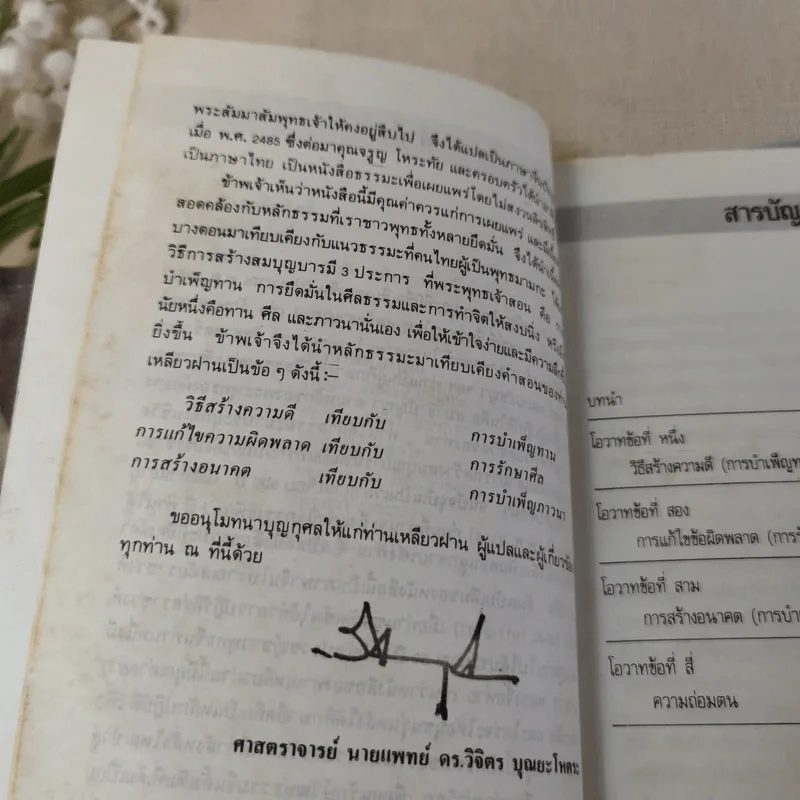 พระสัมมาสัมพุทธเจ้าให้คงอยู่สืบไป จึงได้แปลเป็นภาษาจีน
เมื่อ พ.ศ. 2485 ซึ่งต่อมาคุณจรูญ โหระทัย และครอบครัวได้
เป็นภาษาไทย เป็นหนังสือธรรมะเพื่อเผยแพร่โดยไม่สงวนลิขสิทธิ์
ข้าพเจ้าเห็นว่าหนังสือนี้มีคุณค่าควรแก่การเผยแพร่
สอดคล้องกับหลักธรรมที่เราชาวพุทธทั้งหลายยึดมั่น จึงได้
บางตอนมาเทียบเคียงกับแนวธรรมะที่คนไทยผู้เป็นพุทธมามกะ
วิธีการสร้างสมบุญบารมี 3 ประการ ที่พระพุทธเจ้าสอน คือ
บำเพ็ญทาน การยึดมั่นในศีลธรรมและการทำจิตให้สงบนิ่ง
นัยหนึ่งคือทาน ศีล และภาวนานั่นเอง เพื่อให้เข้าใจง่ายและมีความ
ยิ่งขึ้น ข้าพเจ้าจึงได้นำหลักธรรมะมาเทียบเคียงคำสอนของท่าน
เหลียวฝานเป็นข้อ ๆ ดังนี้ :–
วิธีสร้างความดี เทียบกับ การบำเพ็ญทาน
การแก้ไขความผิดพลาด เทียบกับ การรักษาศีล
การสร้างอนาคต เทียบกับ การบำเพ็ญภาวนา
ขออนุโมทนาบุญกุศลให้แก่ท่านเหลียวฝาน ผู้แปลและผู้เกี่ยวข้อง
ทุกท่าน ณ ที่นี้ด้วย
ศาสตราจารย์ นายแพทย์ ดร.วิจิตร บุณยะโหตระ
สารบัญ
บทนำ
โอวาทข้อที่ หนึ่ง
วิธีสร้างความดี (การบำเพ็ญ
โอวาทข้อที่ สอง
การแก้ไขข้อผิดพลาด (การ
โอวาทข้อที่ สาม
การสร้างอนาคต (การ
โอวาทข้อที่ สี่
ความถ่อมตน